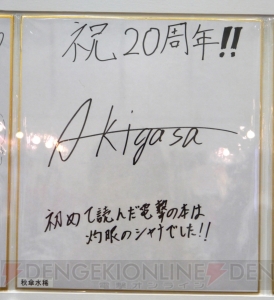 祝20周年!!
Akigasa
初めて読んだ電撃の本は
灼眼のシャナでした!!
秋傘水稀
DENGEKIONLINE